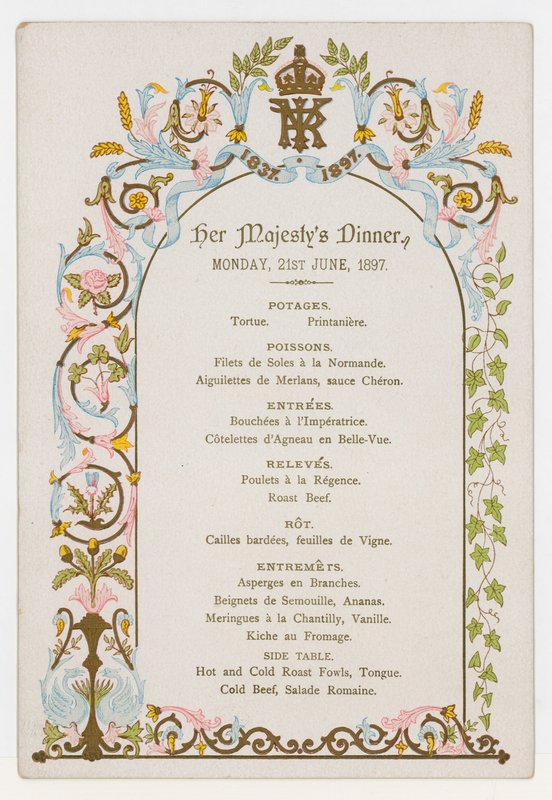 VRI
1837. 1897.
Her Majesty's Dinner,
MONDAY, 21ST JUNE, 1897.
POTAGES.
Tortue. Printanière.
POISSONS.
Filets de Soles à la Normande.
Aiguilettes de Merlans, sauce Chéron.
ENTRÉES.
Bouchées à l'Impératrice.
Côtelettes d'Agneau en Belle-Vue.
RELEVÉS.
Poulets à la Régence.
Roast Beef.
RÔT.
Cailles bardées, feuilles de Vigne.
ENTREMÊTS.
Asperges en Branches.
Beignets de Semouille, Ananas.
Meringues à la Chantilly, Vanille.
Kiche au Fromage.
SIDE TABLE.
Hot and Cold Roast Fowls, Tongue.
Cold Beef, Salade Romaine.